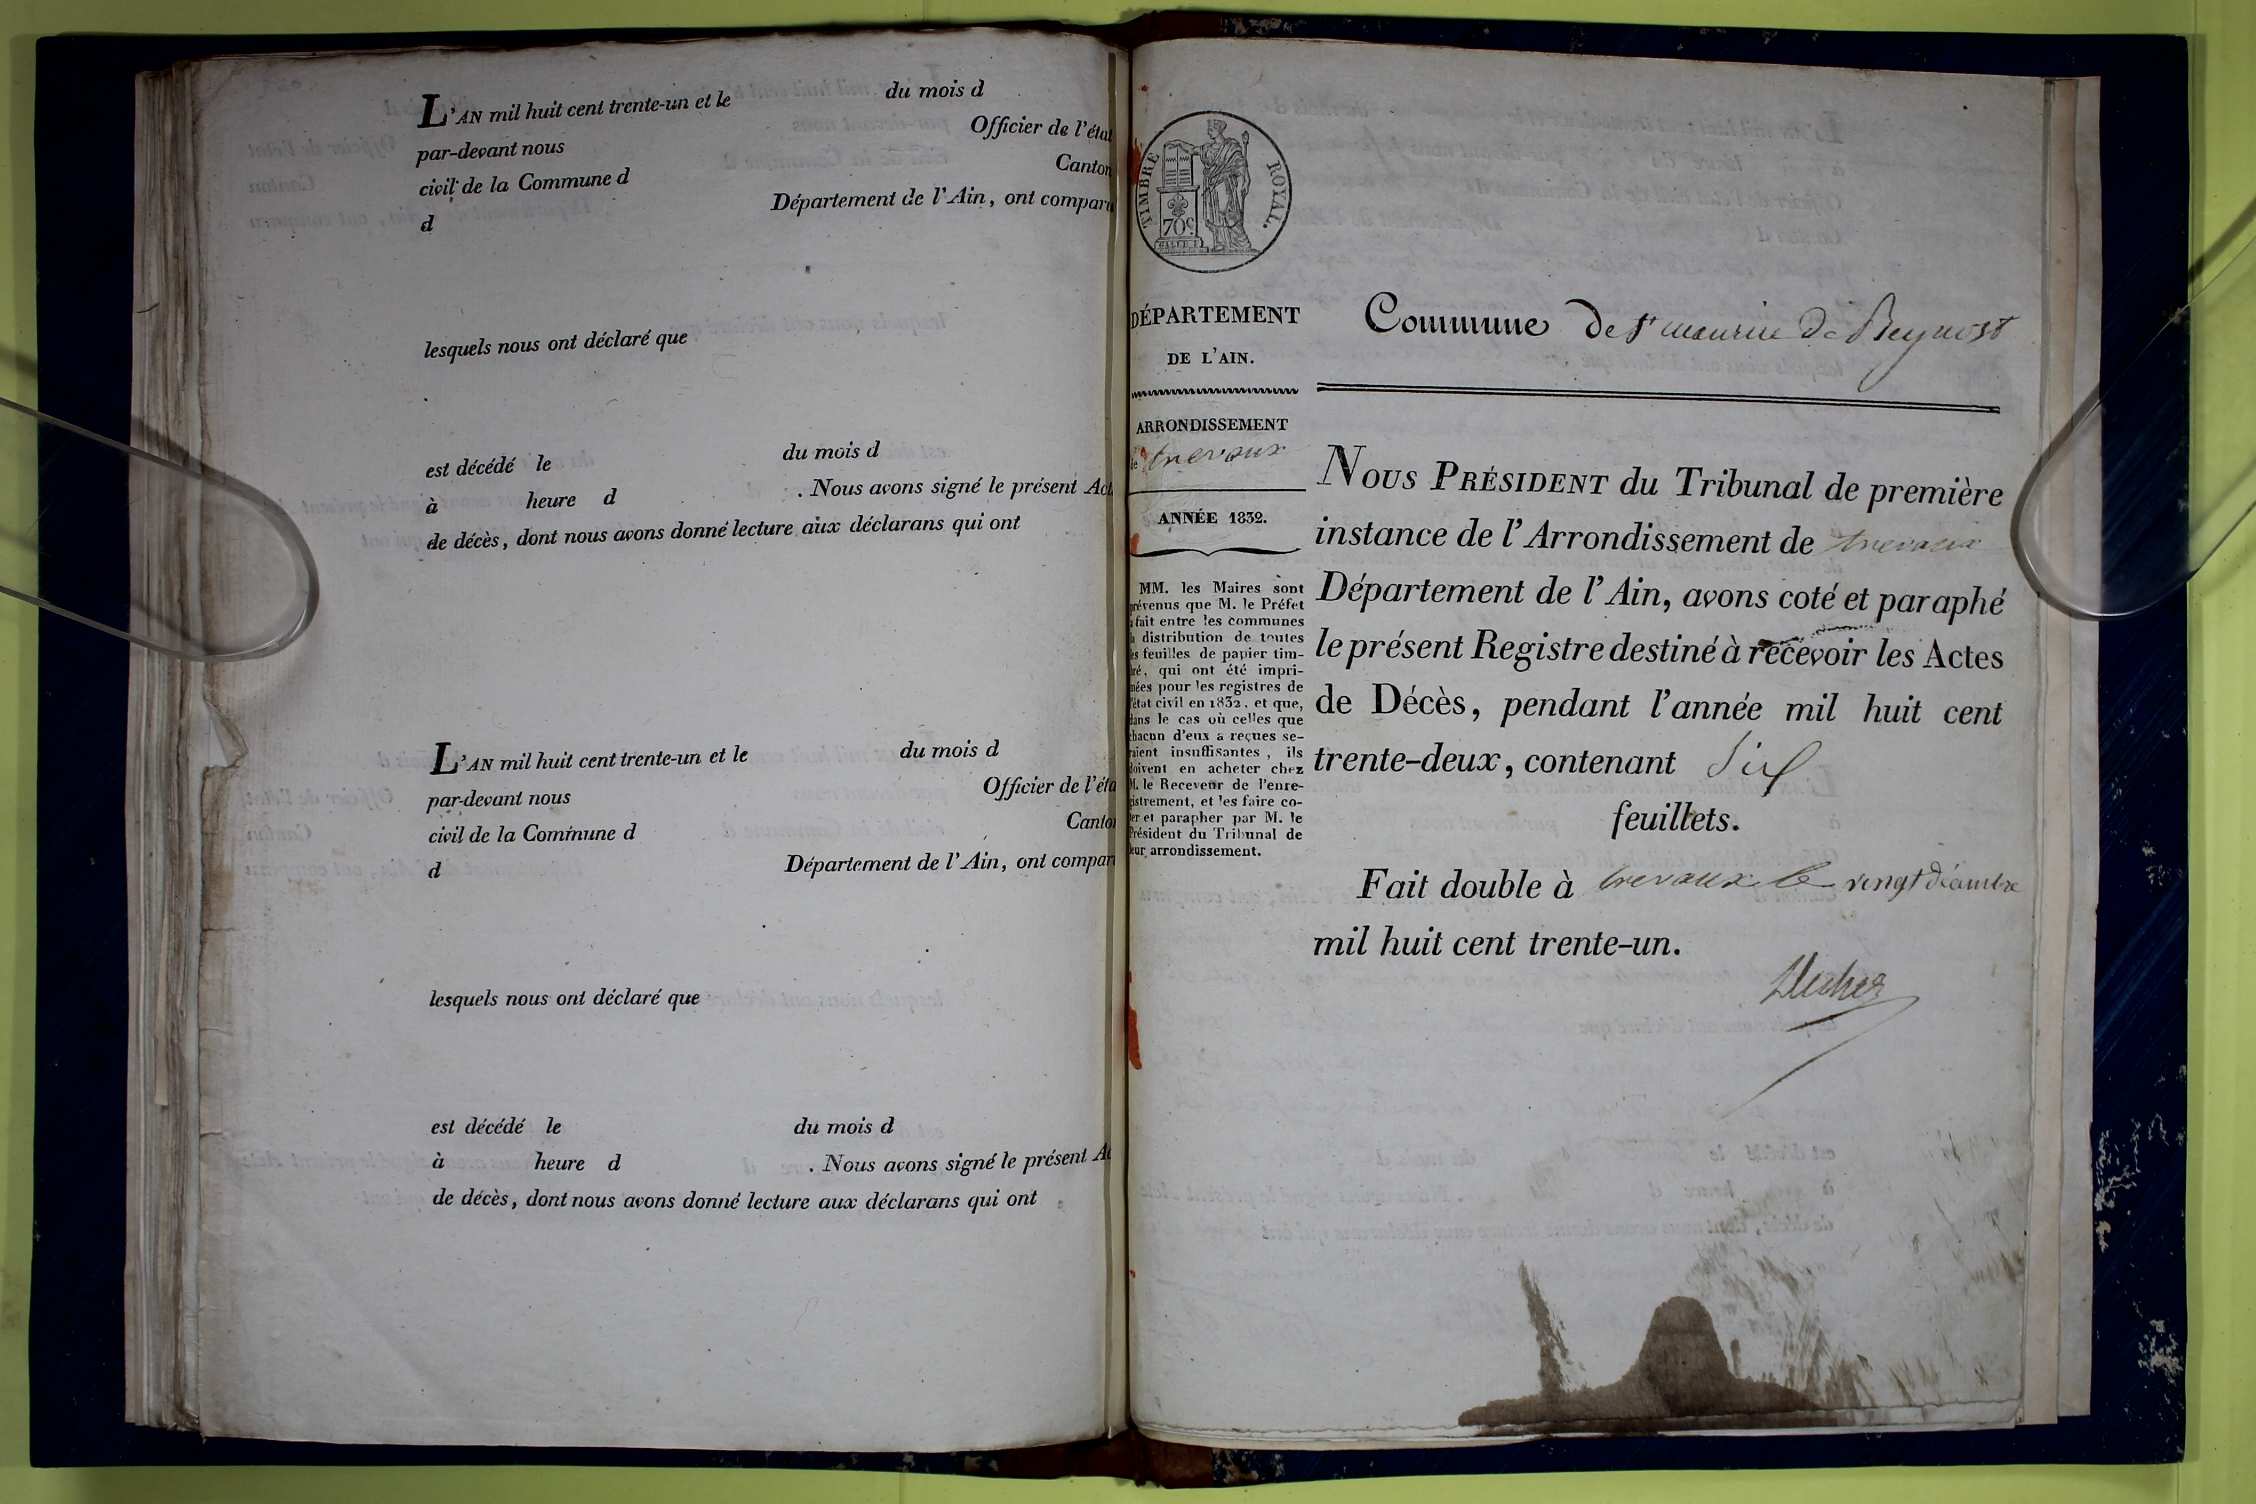 L'AN mil huit cent trente-un et le du mois d
par-devant nous Officier de l'état
civil de la Commune d Canton
d Département de l'Ain, ont comparu
lesquels nous ont déclaré que
est décédé le du mois d
à heure d . Nous avons signé le présent Act
de décès, dont nous avons donné lecture aux déclarans qui ont
L'AN mil huit cent trente-un et le du mois d
par-devant nous Officier de l'éta
civil de la Commune d Canto
d Département de l'Ain, ont compar
lesquels nous ont déclaré que
est décédé le du mois d
à heure d . Nous avons signé le présent Ac
de décès, dont nous avons donné lecture aux déclarans qui ont
TIMBRE ROYAL.
70c
DÉPARTEMENT
DE L'AIN.
ARRONDISSEMENT
de trevoux
ANNÉE 1832.
MM. les Maires sont
prévenus que M. le Préfet
a fait entre les communes
la distribution de toutes
les feuilles de papier tim-
bré, qui ont été impri-
mées pour les registres de
l'état civil en 1832, et que,
dans le cas où celles que
chacun d'eux a reçues se-
raient insuffisantes, ils
doivent en acheter chez
M. le Receveur de l'enre-
gistrement, et les faire co-
ter et parapher par M. le
Président du Tribunal de
leur arrondissement.
Commune de St maurice de Beynost
NOUS PRÉSIDENT du Tribunal de première
instance de l'Arrondissement de trevoux
Département de l'Ain, avons coté et paraphé
le présent Registre destiné à recevoir les Actes
de Décès, pendant l'année mil huit cent
trente-deux, contenant Six
feuillets.
Fait double à trevoux le vingt décembre
mil huit cent trente-un.